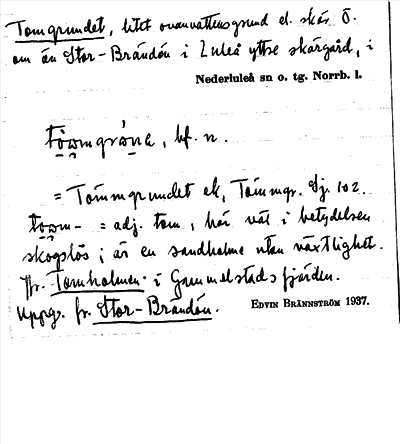 Tomgrundet, litet ovanvattensgrund el. skär Ö.
om ön Stor-Brändön i Luleå yttre skärgård, i
Nederluleå sn o. tg. Norrb. l.
bf. n.
= Tommgrundet ek, Tommgr. Sj. 102.
= adj. tom, här väl i betydelsen
skogslös; är en sandholme utan växtlighet.
Jfr. Tomholmen i Gammelstadsfjärden.
Uppg. fr. Stor-Brändön.
EDVIN BRÄNNSTRÖM 1937.